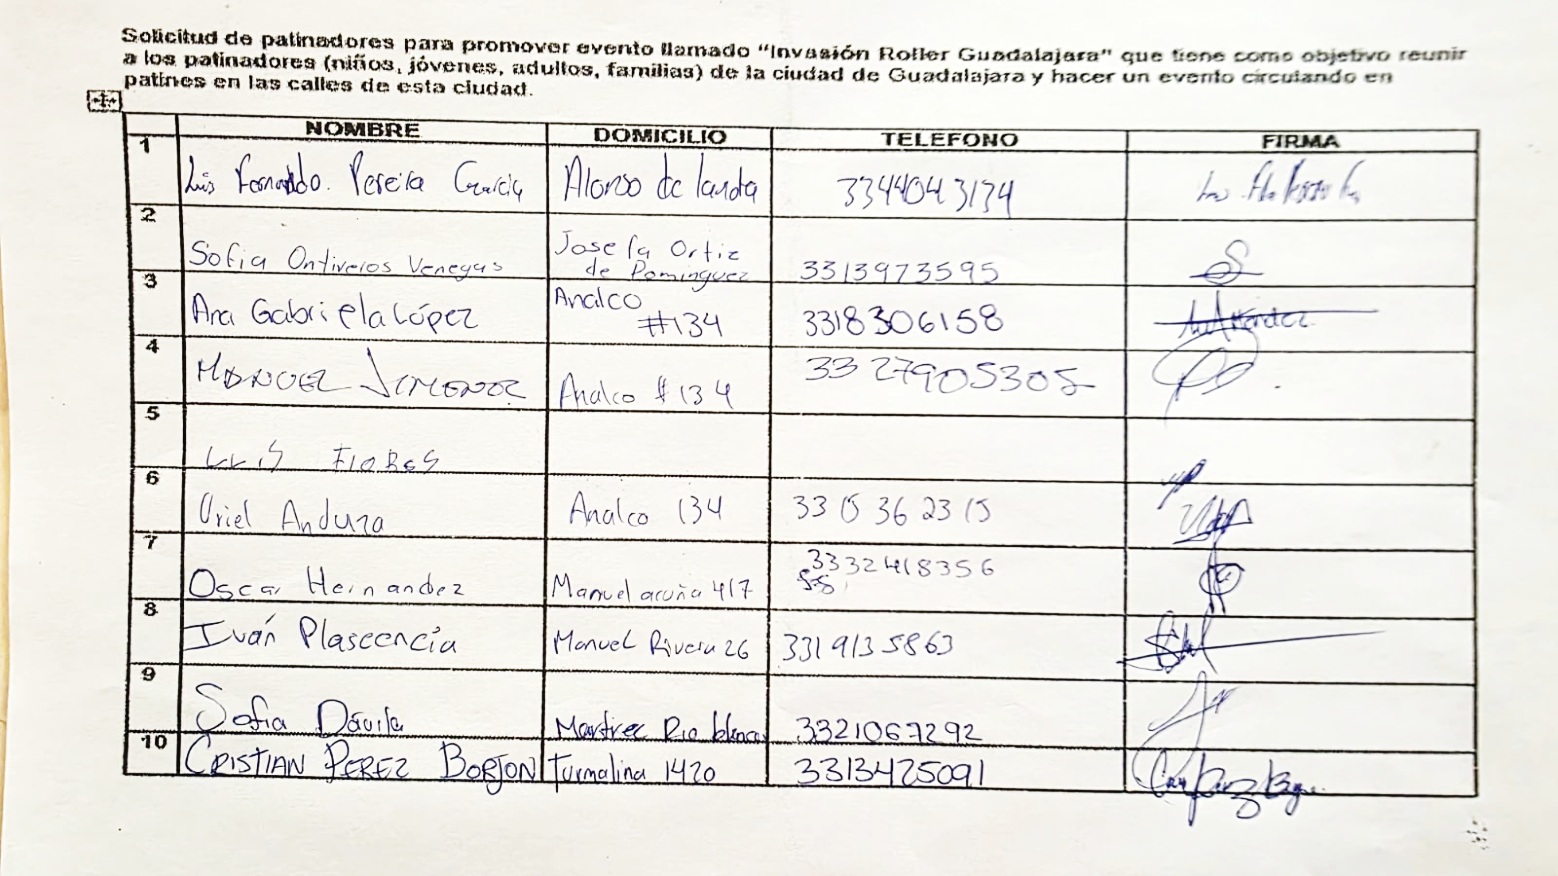 Solicitud de patinadores para promover evento llamado “Invasión Roller Guadalajara” que tiene como objetivo reunir
a los patinadores (niños, jóvenes, adultos, familias) de la ciudad de Guadalajara y hacer un evento circulando en
patines en las calles de esta ciudad.
NOMBRE DOMICILIO TELEFONO FIRMA
1 Luis Fernando. Pereira García Alonso de landa 3344043134
2 Sofia Ontiveros Venegas Josefa Ortiz de Dominguez 3313973595
3 Ana Gabriela López Analco #134 3318306158
4 MANUEL JIMENEZ Analco #134 3327905305
5 LUIS FlOReS
6 Uriel Anduza Analco 134 33 15 36 23 15
7 Oscar Hernandez Manuel acuña 417 3332418356
8 Iván Plascencia Manuel Rivera 26 3319135863
9 Sofia Dávila Martirez Rio blanco 3321067292
10 CRISTIAN PEREZ BORJON Turmalina 1420 3313425091